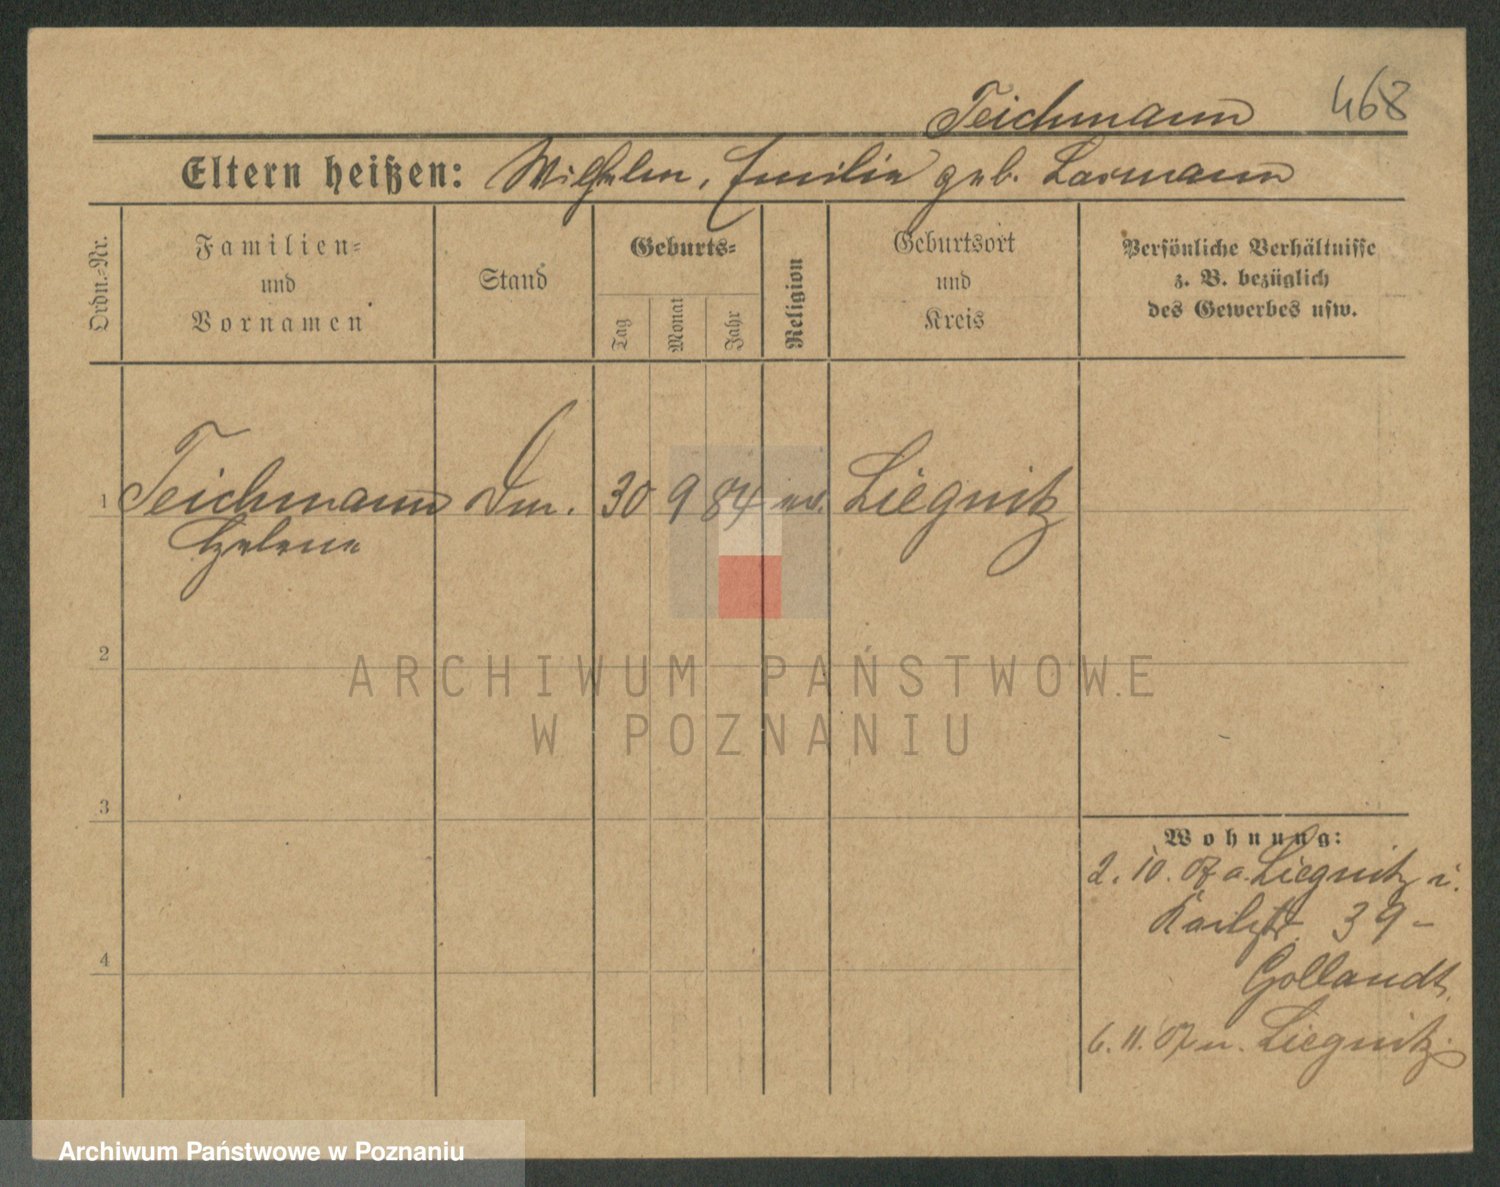 Teichmann 468
Eltern heißen: Wilhelm, Emilie geb. Larmann
Ordn.-Nr.
Familien-
und
Vornamen
Stand
Geburts-
Tag
Monat
Jahr
Religion
Geburtsort
und
Kreis
Persönliche Verhältnisse
z. B. bezüglich
des Gewerbes usw.
1 Teichmann 30 9 84 ev. Liegnitz
Helene
2
3
4
Wohnung:
2. 10. 07 a. Liegnitz i.
Karlstr. 39 –
Gollandt.
6. 11. 07 n. Liegnitz.
ARCHIWUM PAŃSTWOWE
W POZNANIU
Archiwum Państwowe w Poznaniu